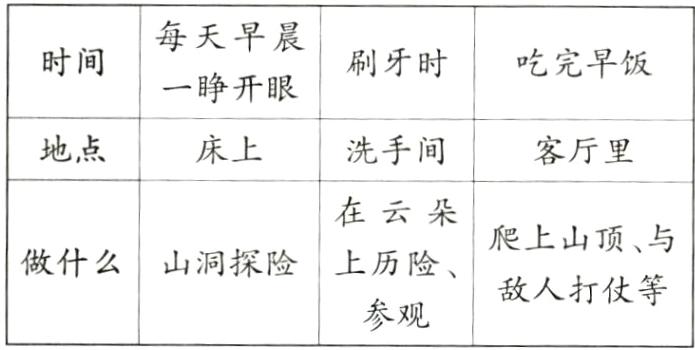 时间
每天早晨
一睁开眼
刷牙时
吃完早饭
地点
床上
洗手间
客厅里
做什么
山洞探险
在云朵
上历险、
参观
爬上山顶、与
敌人打仗等